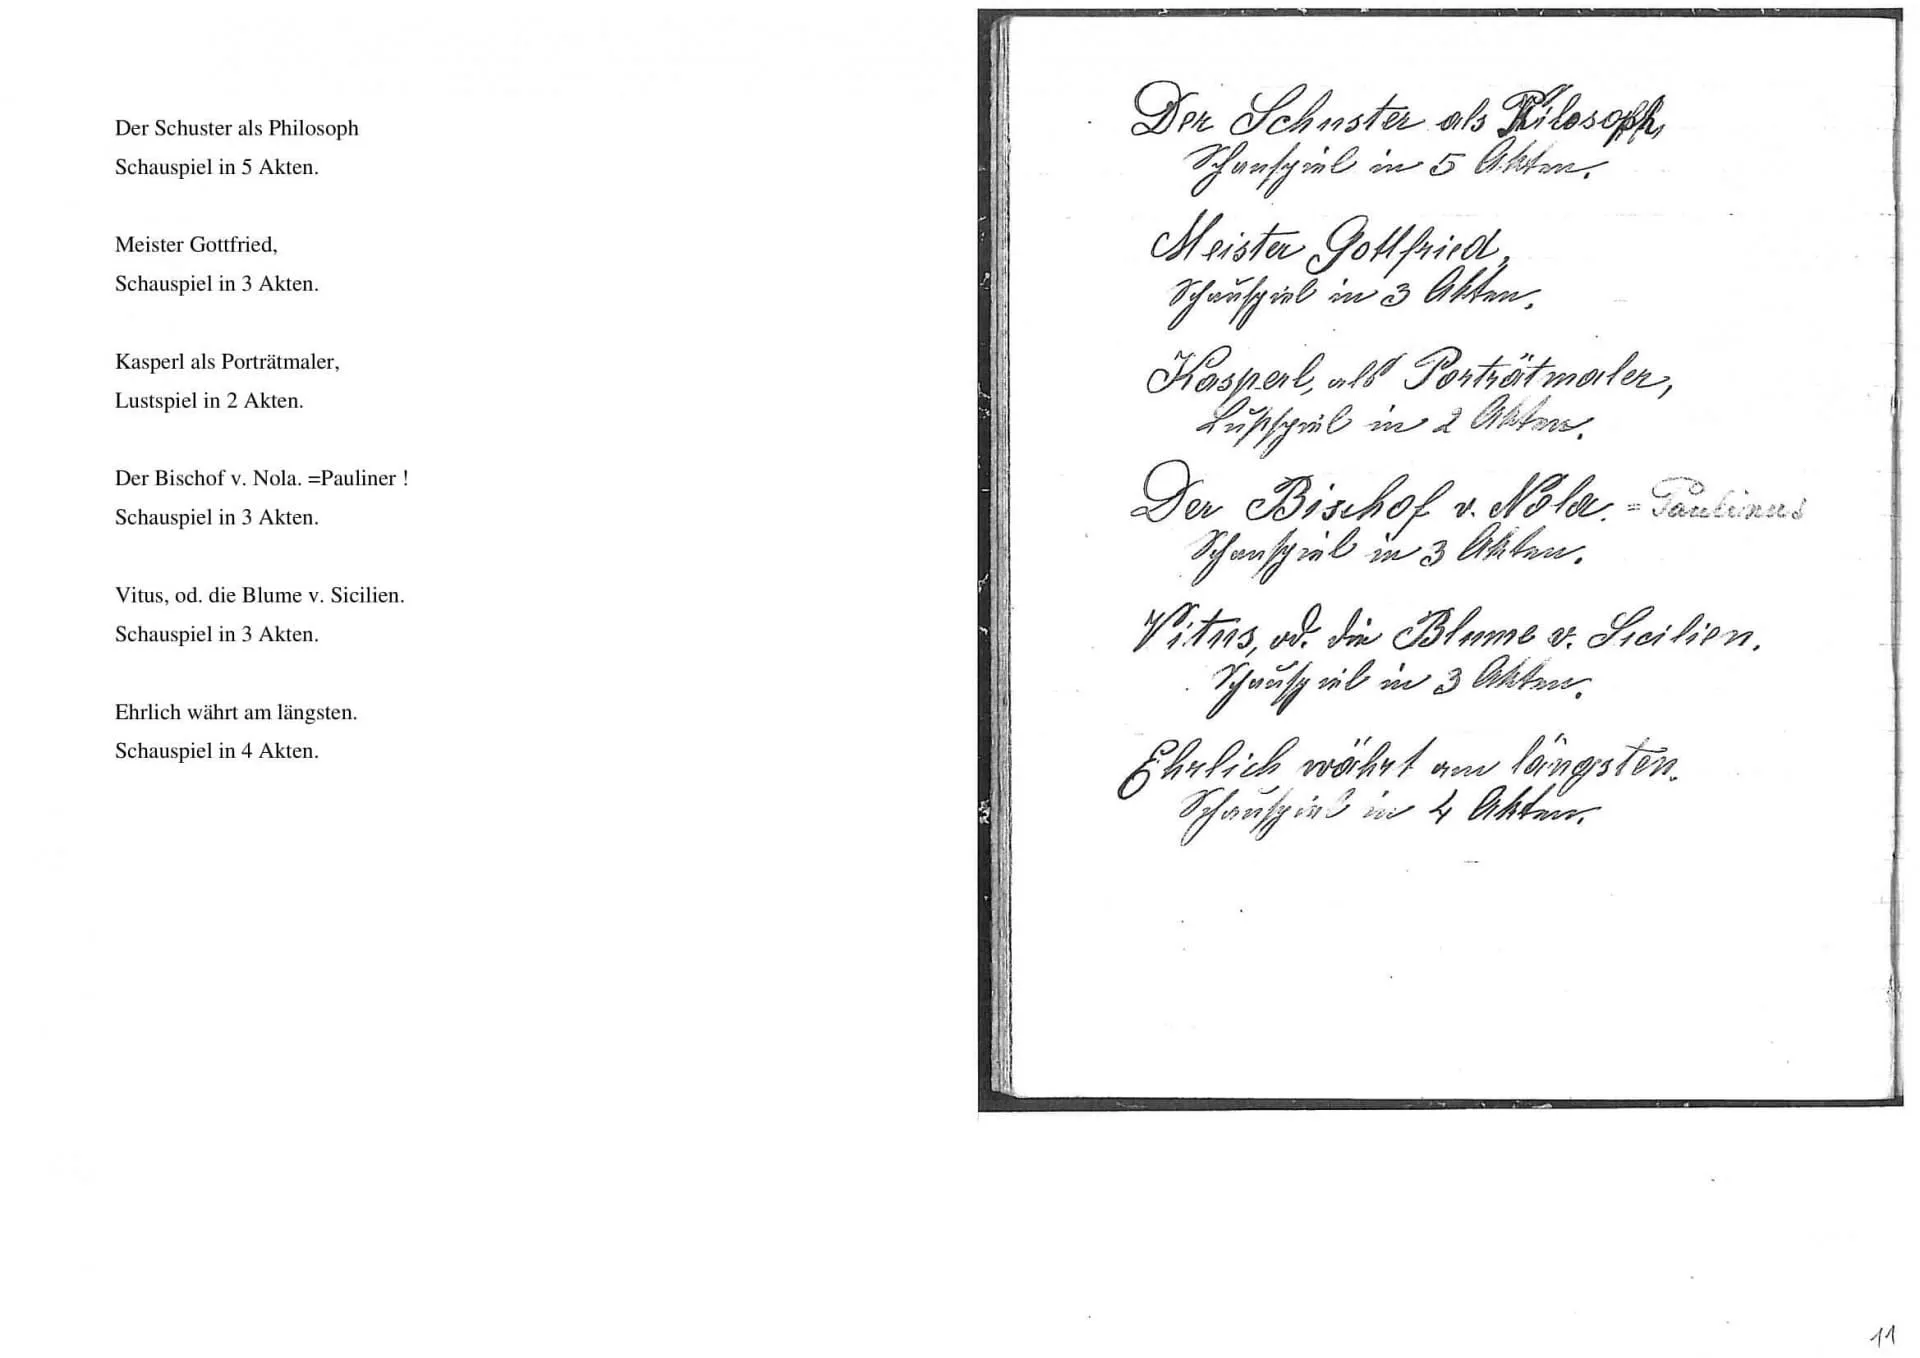 Der Schuster als Philosoph
Schauspiel in 5 Akten.
Meister Gottfried,
Schauspiel in 3 Akten.
Kasperl als Porträtmaler,
Lustspiel in 2 Akten.
Der Bischof v. Nola. =Pauliner !
Schauspiel in 3 Akten.
Vitus, od. die Blume v. Sicilien.
Schauspiel in 3 Akten.
Ehrlich währt am längsten.
Schauspiel in 4 Akten.
Der Schuster als Philosoph,
Schauspiel in 5 Akten.
Meister Gottfried,
Schauspiel in 3 Akten.
Kasperl, als Porträtmaler,
Lustspiel in 2 Akten.
Der Bischof v. Nola. = Paulinus
Schauspiel in 3 Akten.
Vitus, od. die Blume v. Sicilien.
Schauspiel in 3 Akten.
Ehrlich währt am längsten.
Schauspiel in 4 Akten.
11